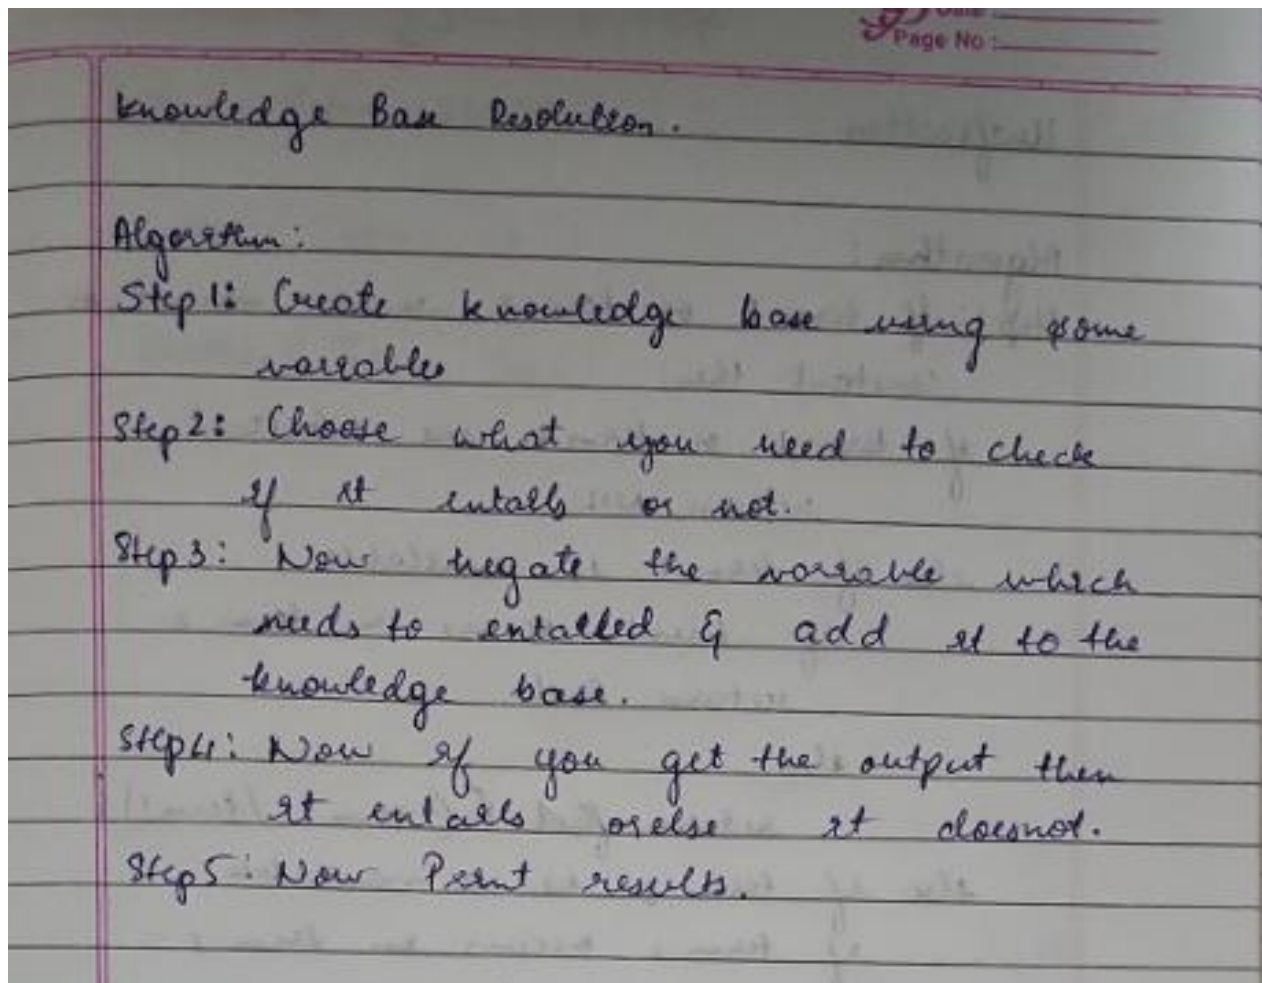 Date :
Page No :
Knowledge Base Resolution.
Algorithm:
Step 1: Create knowledge base using some
variables
Step 2: Choose what you need to check
if it entails or not.
Step 3: Now negate the variable which
needs to entailed & add it to the
knowledge base.
Step 4: Now if you get the output then
it entails orelse it doesnot.
Step 5: Now Print results.